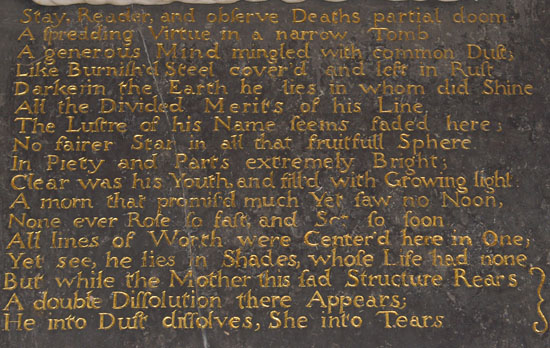 Stay, Reader, and obſerve Deaths partial doom,
A ſpreading Virtue in a narrow Tomb
A generous Mind mingled with common Duſt,
Like Burniſh'd Steel cover'd and left in Ruſt
Dark in the Earth he lies, in whom did Shine
All the Divided Merits of his Line
The Luſtre of his Name ſeems fade'd here,
No fairer Star in all that fruitfull Sphere
In Piety and Parts extremely Bright;
Clear was his Youth, and fill'd with Growing light
A morn that promis'd much Yet ſaw no Noon,
None ever Roſe ſo faſt, and Set ſo ſoon
All lines of Worth were Center'd here in One,
Yet see, he lies in Shades, whoſe Life had none
But while the Mother this ſad Structure Rears
A double Diſſolution there Appears;
He into Duſt diſſolves, She into Tears